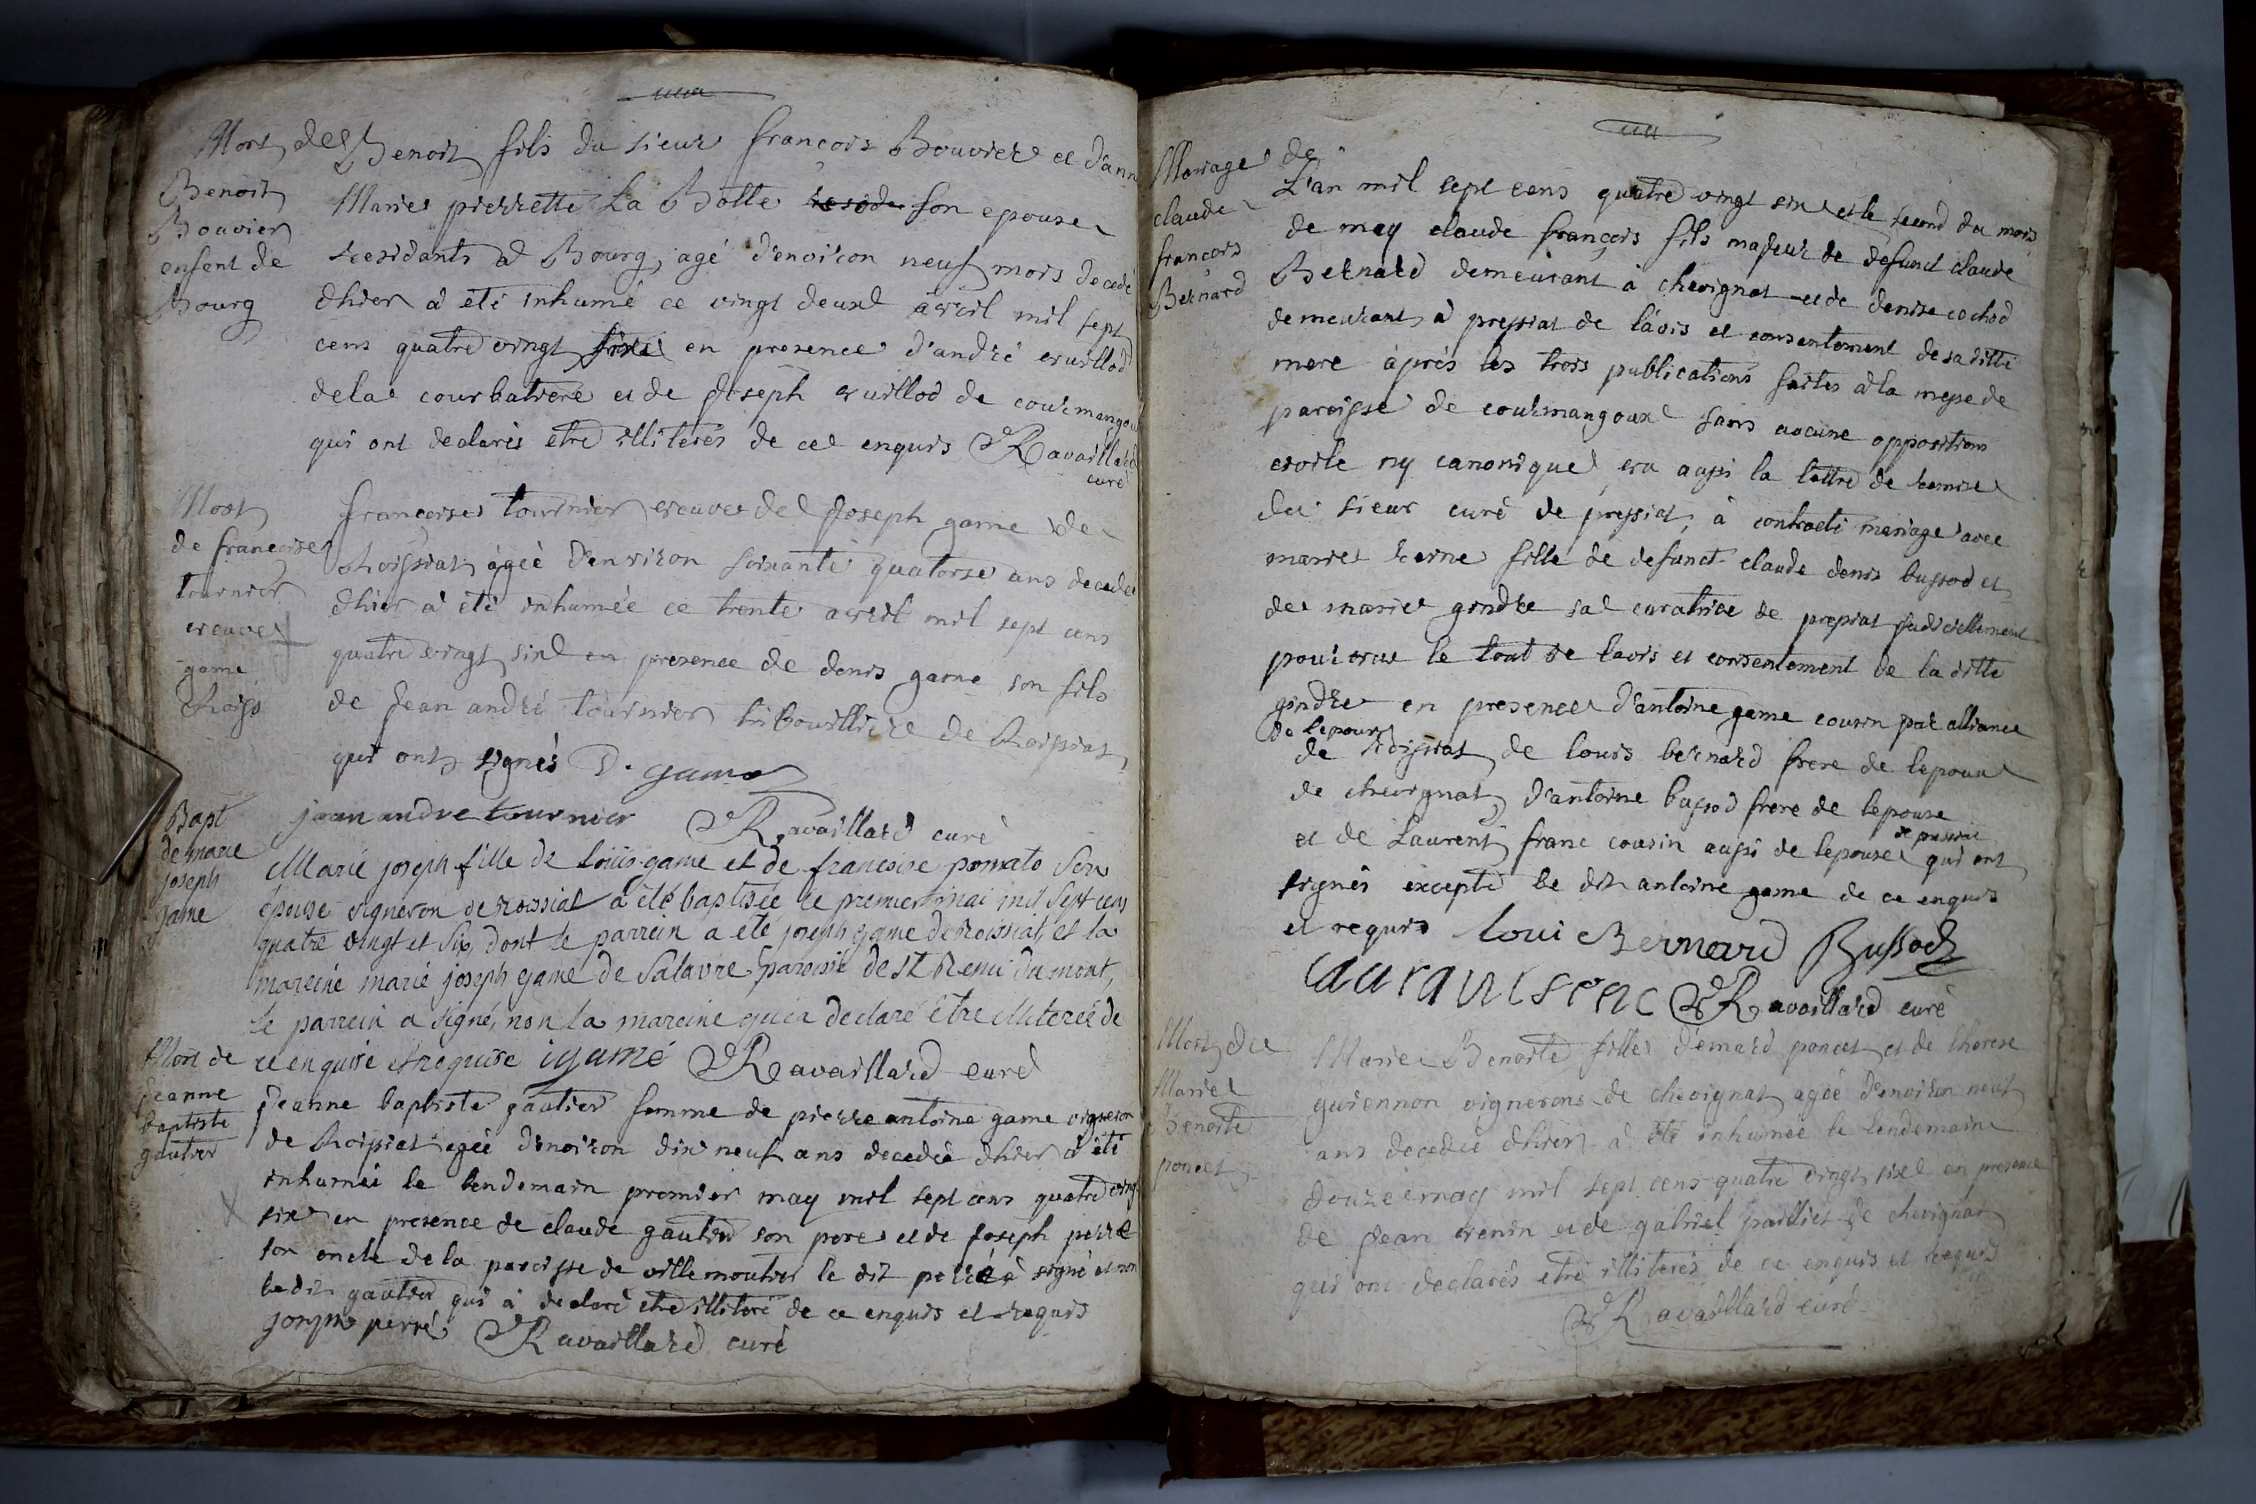 Mort de
Benoit
Bouvier
enfent de
Bourg
Benoit fils du sieur francois Bouvier et d'ann
Marie pierrette La Botte son epouse
residants a Bourg, agé d'environ neuf mois decedé
dhier a été inhumé ce vingt deux avril mil sept
cens quatre vingt sixe en presence d'andré vuillod
de la courbatiere et de Joseph vuillod de courmangou
qui ont declarés etre illiterés de ce enquis Ravaillard
curé
Mort
de francoise
tournier
veuve
game
Roiss
francoise tournier veuve de Joseph game de
Roissiat, agée d'environ soixante quatorse ans decedée
dhier a été inhumée ce trente avril mil sept cens
quatre vingt six en presence de denis game son fils
de Jean andré tournier de Roissiat
qui ont signés D. game
jean andre tournier Ravaillard curé
Bapt
de marie
joseph
game
Marie joseph fille de loüis game et de francoise pomato son
épouse vigneron de roissiat a été baptisée le premier mai mil sept cens
quatre vingt et six, dont le parrein a été joseph game de Roissiat, et la
mareine marie joseph game de Salavre, paroisse de st Remi du mont,
le parrein a signé, non la mareine qui a declaré être illiterée de
ce enquise et requise igamé Ravaillard curé
Mort de
jeanne
baptiste
gautier
Jeanne baptiste gautier femme de pierre antoine game vigneron
de Roissiat agée d'environ dix neuf ans decedée dhier a été
inhumée le lendemain premier may mil sept cens quatre vingt
six en presence de claude gautier son pere et de Joseph perré
son oncle de la paroisse de villemoutier le dit perré a signé et non
le dit gautier qui a declaré etre illiteré de ce enquis et requis
joseph perré Ravaillard curé
Mariage de
claude
francois
Bernard
L'an mil sept cens quatre vingt six et le second du mois
de may claude françois fils majeur de defunct claude
Bernard demeurant à chevignat et de denise cochod
demeurant à pressiat de l'avis et consentement de sa ditte
mere après les trois publications faites a la messe de
paroisse de courmangoux sans aucune opposition
civile ny canonique, vu aussi la lettre de remise
du sieur curé de pressiat, à contracté mariage avec
marie reine fille de defunct claude denis bussod et
de marie gindre sa curatrice de pressiat judiciellement
pourvue le tout de l'avis et consentement de la ditte
gindre en presence d'antoine game cousin par alliance
de lepoux
de Roissiat, de louis bernard frere de lepoux
de chevignat, d'antoine bussod frere de lepouse
et de Laurent franc cousin aussi de lepouse qui ont
signés excepté le dit antoine game de ce enquis
et requis loui Bernard Bussod
Ravaillard curé
Mort de
Marie
Benoite
poncet
Marie Benoite fille d'emard poncet et de therese
guiennon vignerons de chevignat agée d'environ neuf
ans decedée dhier a été inhumée le lendemain
douze may mil sept cens quatre vingt six en presence
de Jean venin et de gabriel paillet de chevignat
qui ont declarés etre illiterés de ce enquis et requis
Ravaillard curé